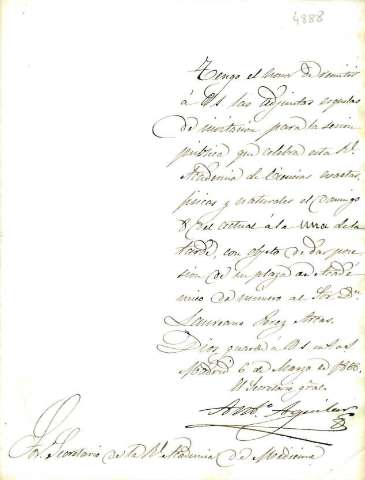 4888
Tengo el honor de remitir
á VS las adjuntas esquelas
de invitacion para la sesion
publica que celebra esta Rl.
Academia de Ciencias exactas,
fisicas y naturales el Domingo
8 del actual á la una de la
tarde, con objeto de dar pose
sion de su plaza de Acadé
mico de número al Sor. Dn.
Laureano Perez Arcas.
Dios guarde á VS
Madrid 6 de Marzo de 1868.
El Secretario gral.
Anto. Aguilar
Sr. Secretario de la Rl. Academia de Medicina